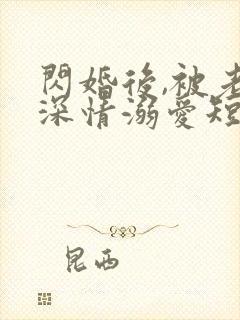 閃婚後,被老
深情溺愛短
昆西